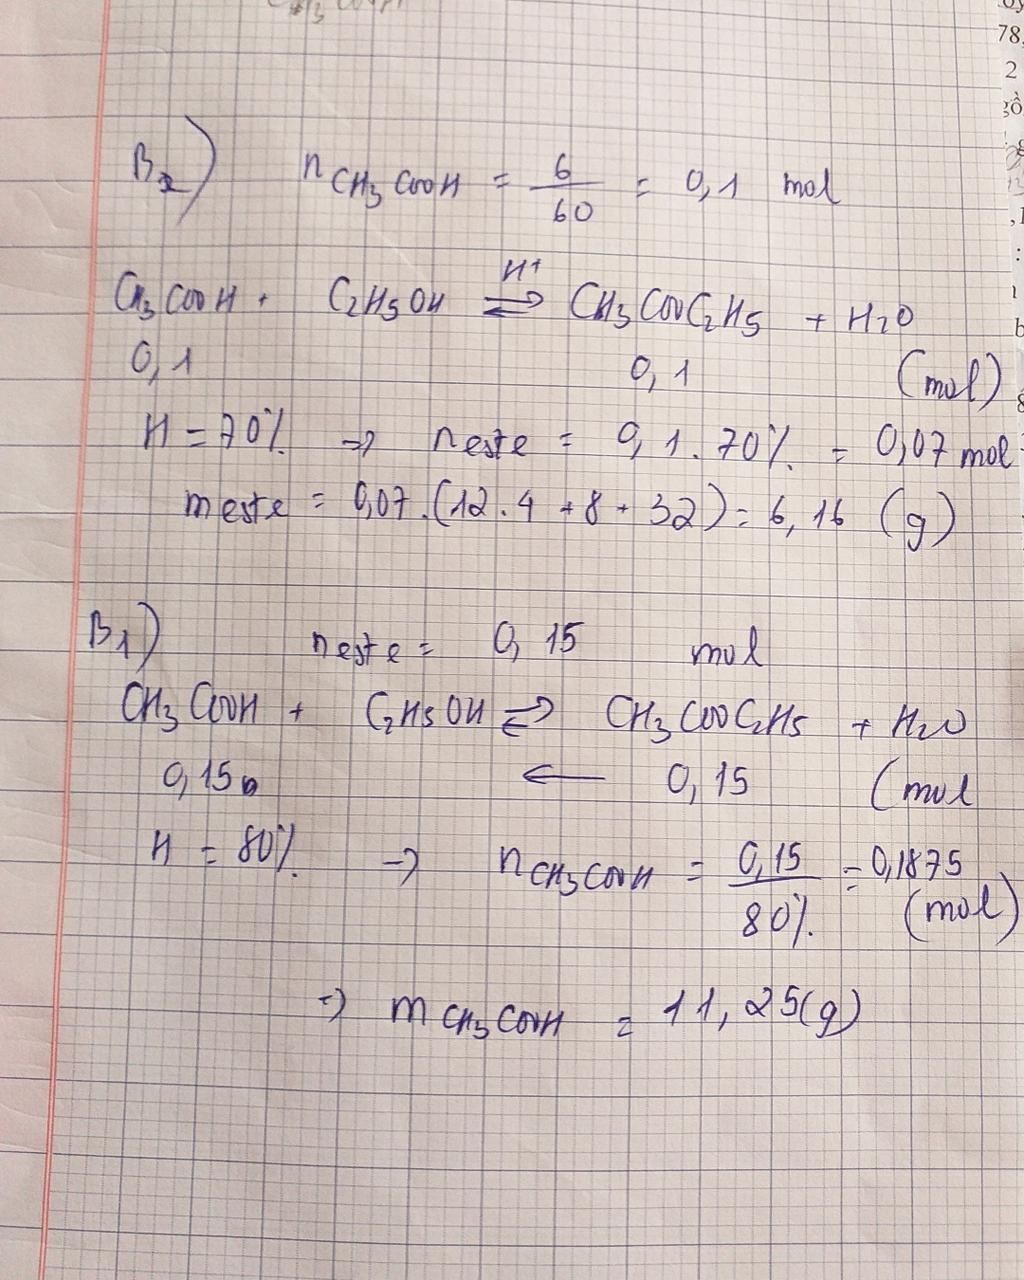 B2) nCH3COOH = 6/60 = 0,1 mol
CH3COOH + C2H5OH ⇌ (H+) CH3COOC2H5 + H2O
0,1 0,1 (mol)
H = 70% => neste = 0,1.70% = 0,07 mol
meste = 0,07.(12.4 + 8 + 32) = 6,16 (g)
B1) neste = 0,15 mol
CH3COOH + C2H5OH ⇌ CH3COOC2H5 + H2O
0,15 ← 0,15 (mol
H = 80% => nCH3COOH = 0,15/80% = 0,1875
(mol)
=> mCH3COOH = 11,25(g)
78,
2